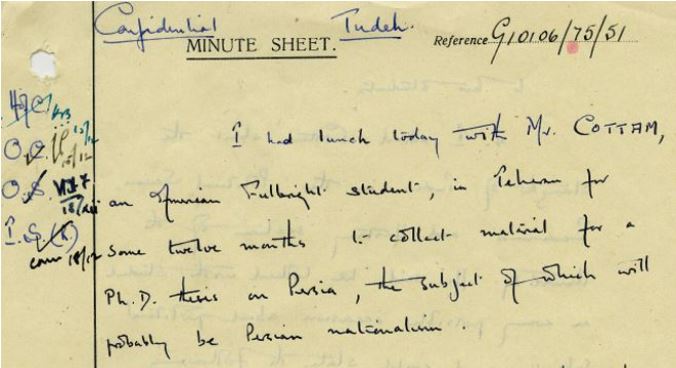 Confidential Tudeh.
MINUTE SHEET.
Reference G10106/75/51
H of C
O.C. 15/12
O.S. 18/xii
I.S.(R) 18/12
I had lunch today with Mr. COTTAM,
an American Fulbright student, in Teheran for
some twelve months to collect material for a
Ph.D. thesis on Persia, the subject of which will
probably be Persian nationalism.